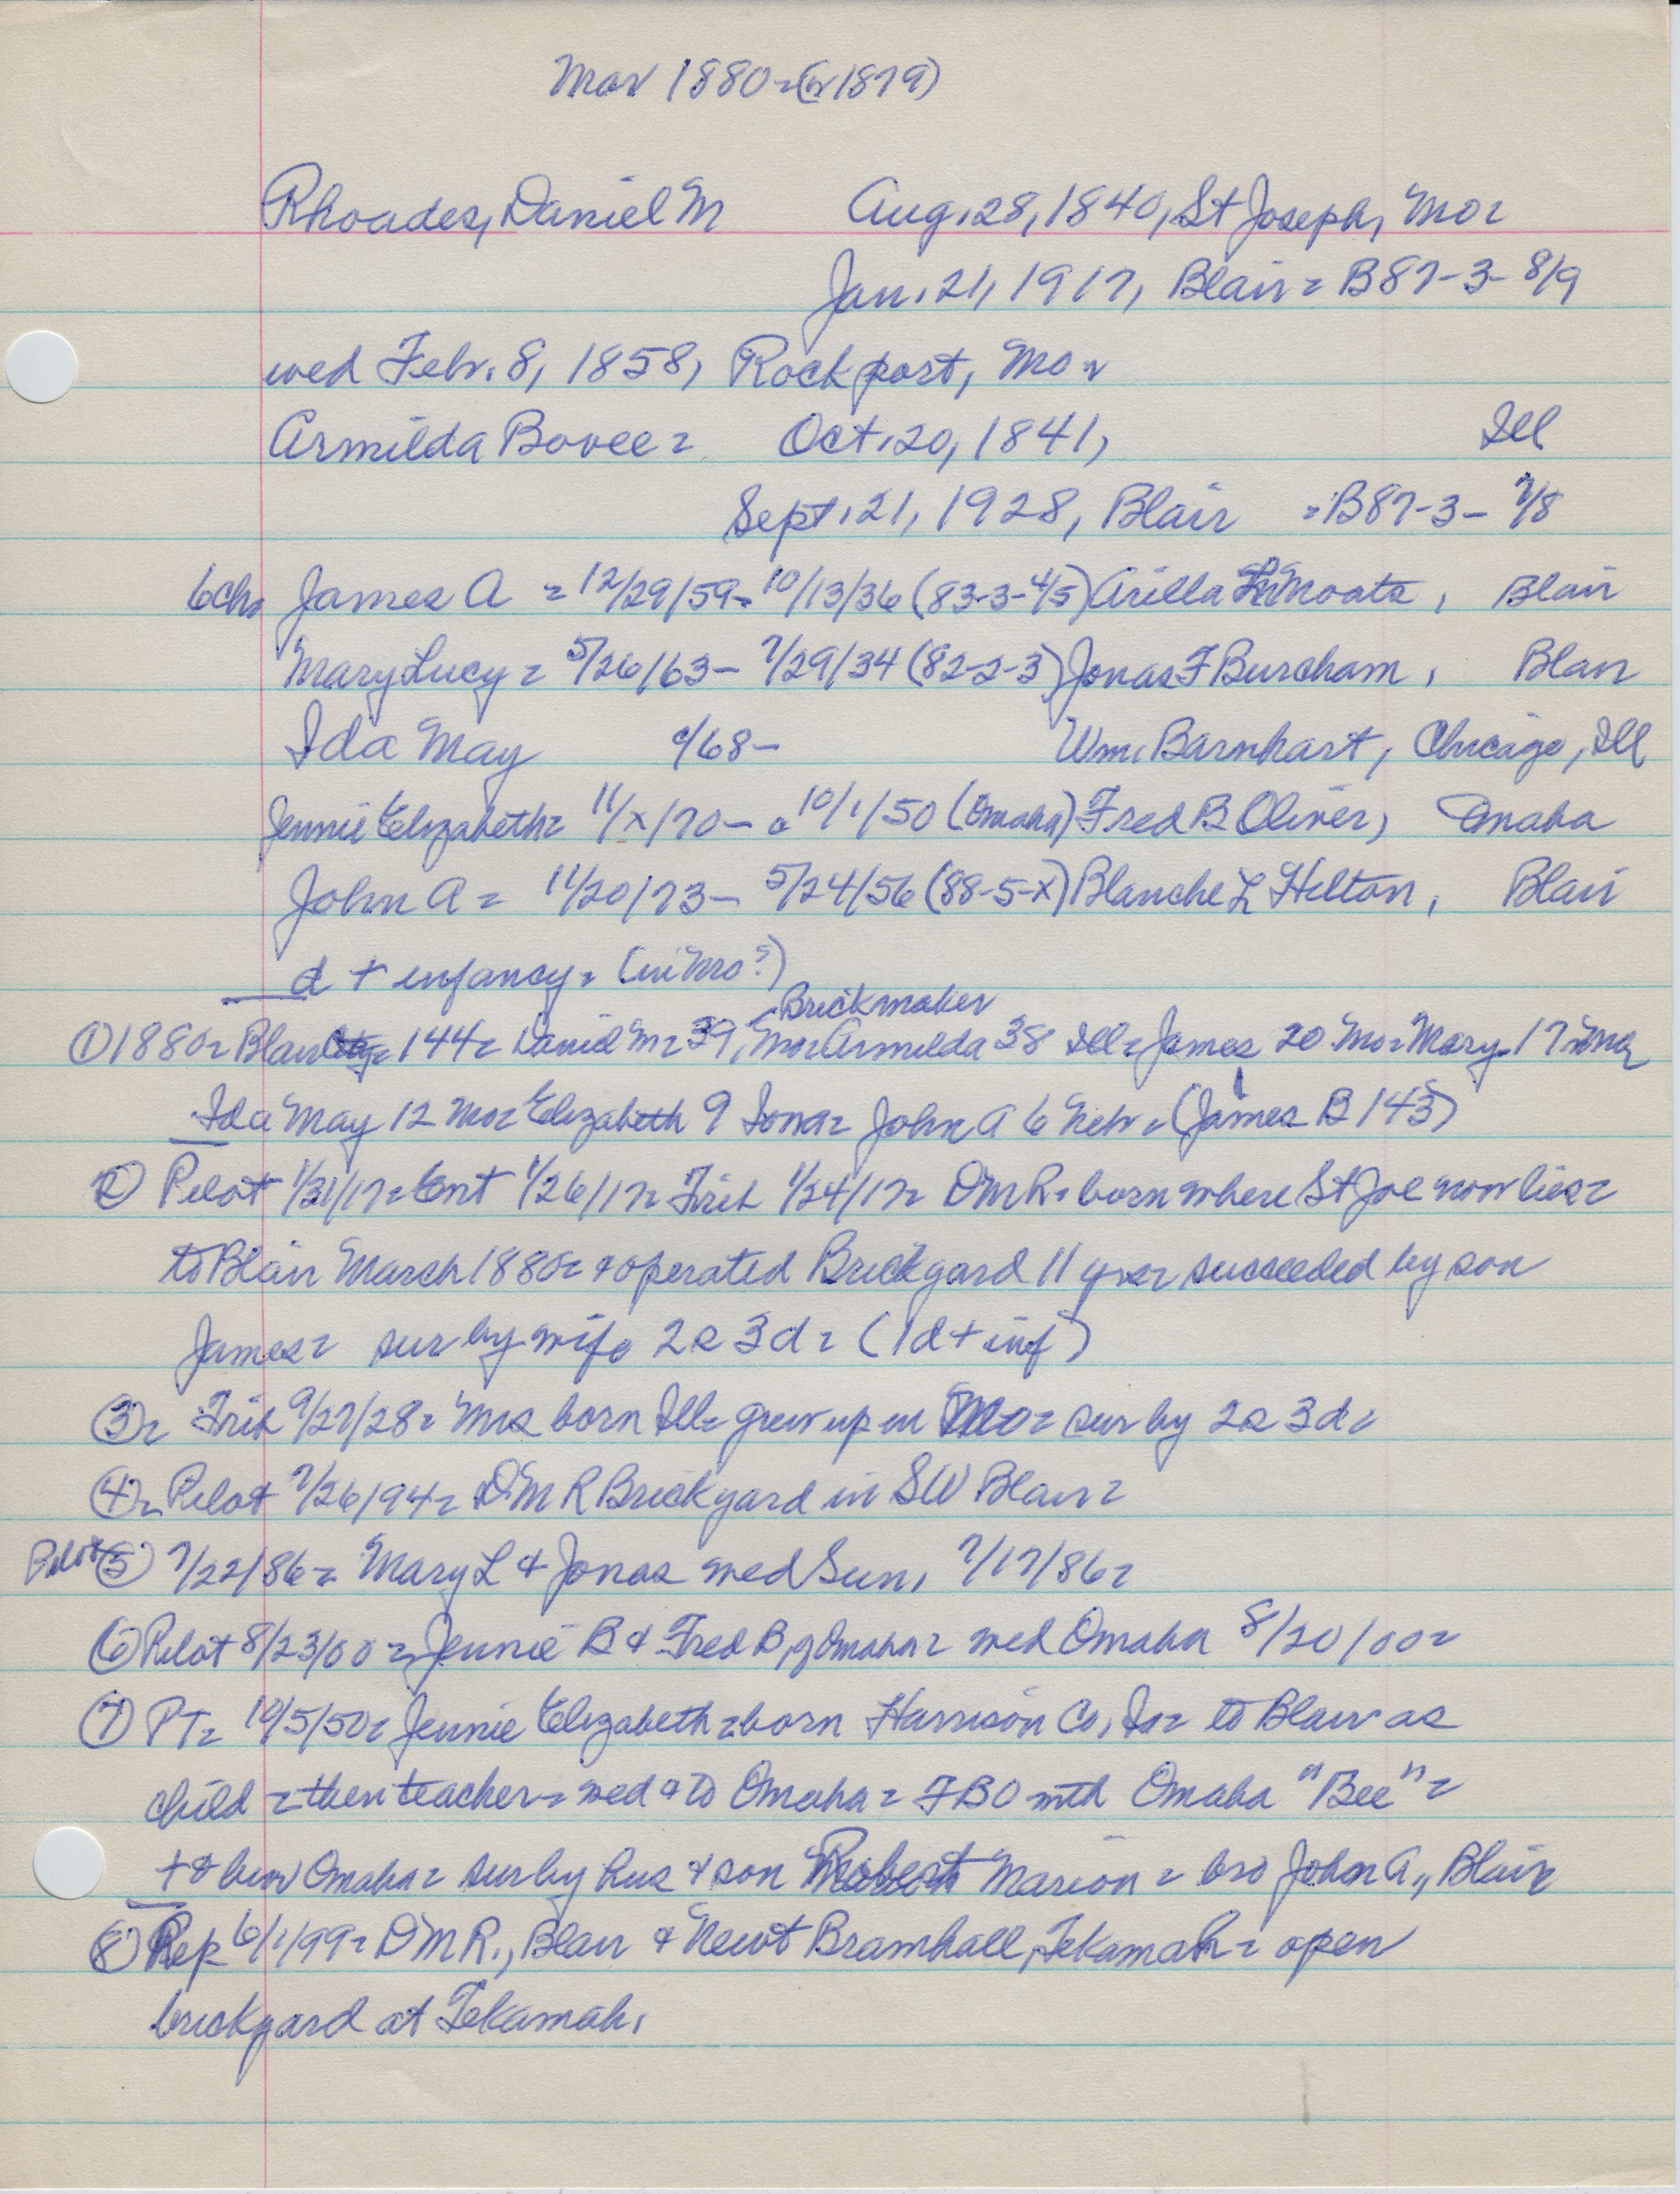 Mar 1880 = (or 1879)
Rhoades, Daniel M Aug. 28, 1840, St Joseph, Mo =
Jan. 21, 1917, Blair = B87-3-8/9
wed Febr. 8, 1858, Rockport, Mo =
Armilda Bovee = Oct. 20, 1841, Ill
Sept. 21, 1928, Blair = B87-3-7/8
6ch= James A = 12/29/59 - 10/13/36 (83-3-4/5) Arilla Moats, Blair
Mary Lucy = 5/26/63 - 7/29/34 (82-2-3) Jonas F Burcham, Blair
Ida May c/68 - Wm. Barnhart, Chicago, Ill
Jennie Elizabeth = 11/x/70 - a 10/1/50 (Omaha) Fred B Oliver, Omaha
John A = 11/20/73 - 5/24/56 (88-5-x) Blanche L Hilton, Blair
d + infancy = (in Mo?)
Brickmaker
① 1880 = Blair = 144 = Daniel M = 39, Mo = Armilda 38 Ill = James 20 Mo = Mary 17 Mo =
Ida May 12 Mo = Elizabeth 9 Iowa = John A 6 Nebr = (James B 143)
② Pilot 1/31/17 = Ent 1/26/17 = Trib 1/24/17 = DMR = born where St Joe now lies =
to Blair March 1880 = & operated Brickyard 11 yrs = succeeded by son
James = sur by wife 2s 3d = (1d + inf)
③ = Trib 9/27/28 = Mrs born Ill = grew up in Mo = sur by 2s 3d =
④ = Pilot 7/26/94 = DMR Brickyard in SW Blair =
Pilot ⑤ 7/22/86 = Mary L & Jonas wed Sun, 7/17/86 =
⑥ Pilot 8/23/00 = Jennie B & Fred B, of Omaha = wed Omaha 8/20/00 =
⑦ PT = 10/5/50 = Jennie Elizabeth = born Harrison Co, Ia = to Blair as
child = then teacher = wed & to Omaha = FBO with Omaha "Bee" =
+ & bur Omaha = sur by hus & son Robert Marion = bro John A., Blair
⑧ Rep 6/1/99 = DMR., Blair & Newt Bramhall, Tekamah = open
brickyard at Tekamah.